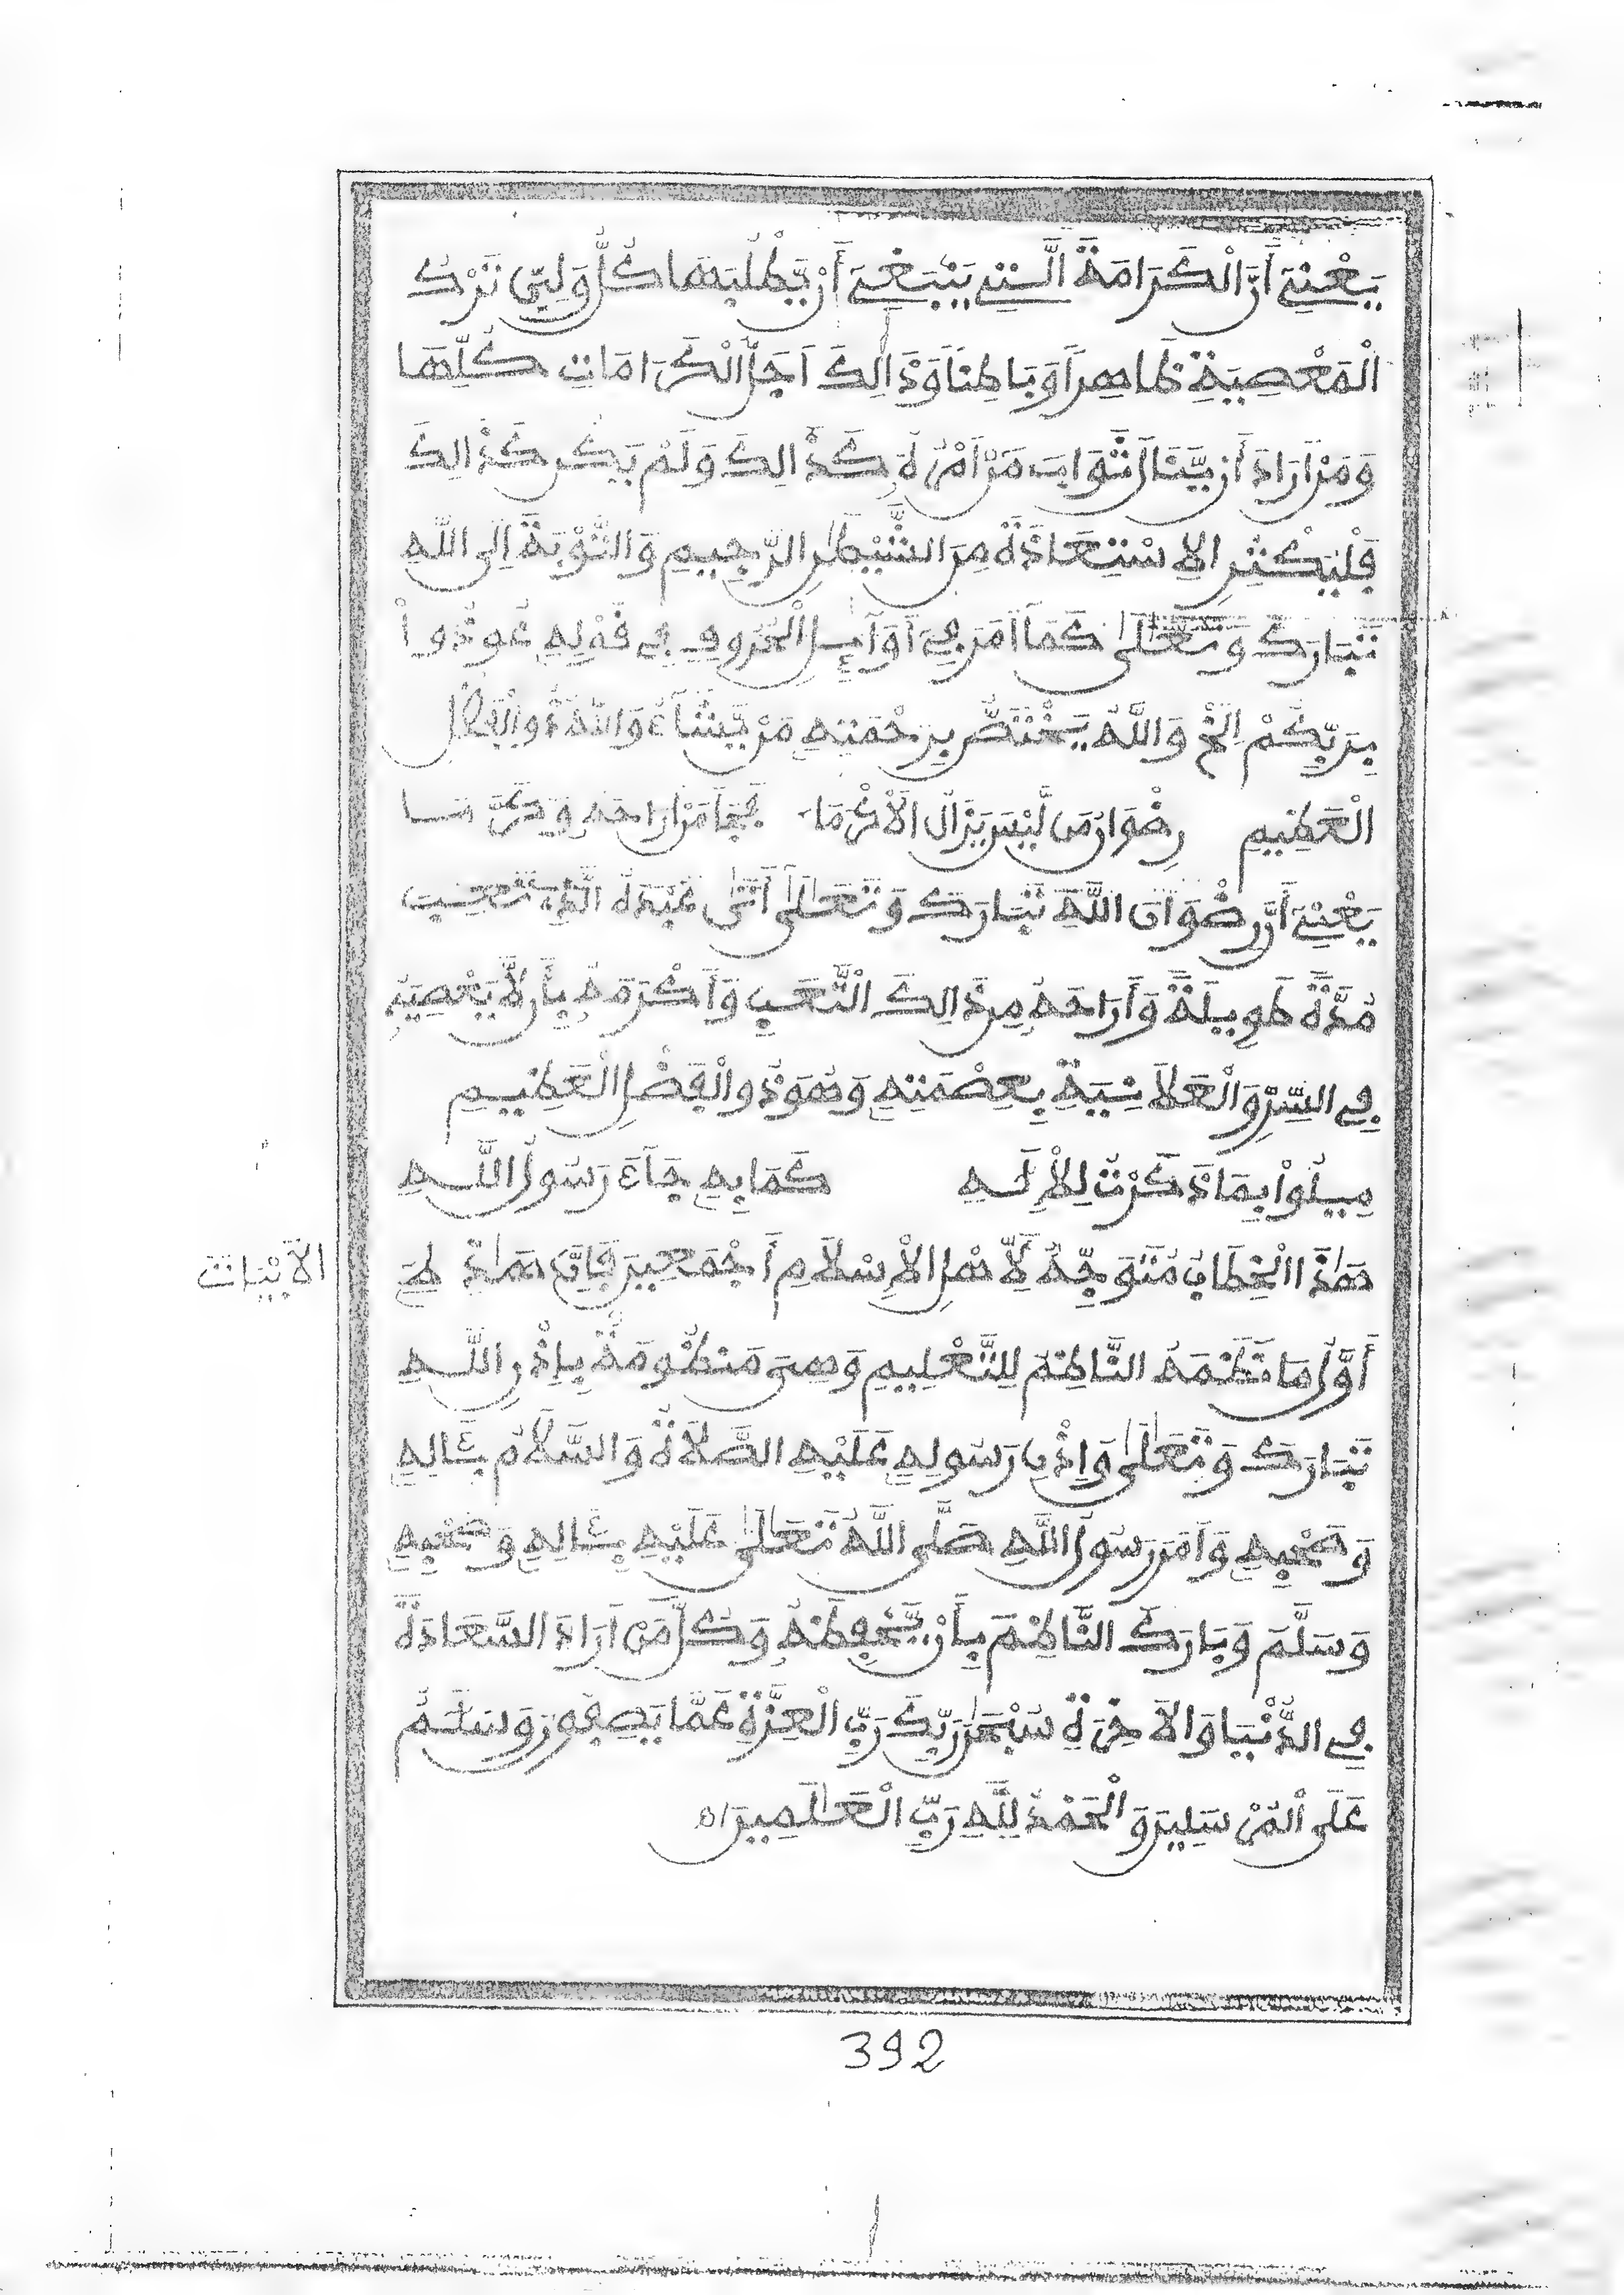 يَعْنِي أَنَّ الْكَرَامَةَ الَّتِي يَنْبَغِي أَنْ يَّطْلُبَهَا كُلُّ وَلِيٍّ تَرْكُ
الْمَعْصِيَةِ ظَاهِراً وَبَاطِناً وَذَالِكَ أَجَلُّ الْكَرَامَاتِ كُلِّهَا
وَمَنْ أَرَادَ أَنْ يَّنَالَ ثَوَابَ مَنْ أَمْرُهُ كَذَالِكَ وَلَمْ يَكُن كَذَالِكَ
فَلْيُكْثِرِ الِاسْتِعَاذَةَ مِنَ الشَّيْطَٰنِ الرَّجِيمِ وَالتَّوْبَةَ إِلَى اللَّهِ
تَبَارَكَ وَتَعَٰلَىٰ كَمَا أَمَرَ فِي أَوَآئِلِ الْحُرُوفِ فِي قَوْلِهِ عُوذُواْ
بِرَبِّكُمْ إلخ وَاللَّهُ يَخْتَصُّ بِرَحْمَتِهِ مَنْ يَّشَآءُ وَاللَّهُ ذُو الْفَضْلِ
الْعَظِيمِ رِضْوَانُ مَن لَّيْسَ يَزَالُ الْأَكْرَمَا نَجَا مَنْ أَرَاحَهُ وَكَرَّمَا
يَعْنِي أَنَّ رِضْوَانَ اللَّهِ تَبَارَكَ وَتَعَٰلَىٰ أَتَىٰ عَبْدَهُ الَّذِي تَعِبَ
مُدَّةً طَوِيلَةً وَأَرَاحَهُ مِن ذَالِكَ التَّعَبِ وَأَكْرَمَهُ بِأَن لَّا يَعْصِيَهُ
فِي السِّرِّ وَالْعَلَانِيَةِ بِعِصْمَتِهِ وَهُوَ ذُو الْفَضْلِ الْعَظِيمِ
مِيلُواْ بِمَا ذَكَرْتُ لِلْإِلَٰهِ كَمَا بِهِ جَآءَ رَسُولُ اللَّهِ
هَٰذَا الْخِطَابُ مُتَوَجِّهٌ لِّأَهْلِ الْإِسْلَامِ أَجْمَعِينَ فَإِنَّ هَٰذِهِ
الْأَبْيَاتَ
أَوَّلُ مَا نَظَمَهُ النَّاظِمُ لِلتَّعْلِيمِ وَهِيَ مَنظُومَةٌ بِإِذْنِ اللَّهِ
تَبَارَكَ وَتَعَٰلَىٰ وَإِذْنِ رَسُولِهِ عَلَيْهِ الصَّلَاةُ وَالسَّلَامُ بِئَالِهِ
وَصَحْبِهِ وَأَمَرَ رَسُولُ اللَّهِ صَلَّى اللَّهُ تَعَٰلَىٰ عَلَيْهِ بِئَالِهِ وَصَحْبِهِ
وَسَلَّمَ وَبَارَكَ النَّاظِمَ بِأَنْ يَّحْفِظَهُ وَكُلَّ مَنْ أَرَادَ السَّعَادَةَ
فِي الدُّنْيَا وَالْآخِرَةِ سُبْحَٰنَ رَبِّكَ رَبِّ الْعِزَّةِ عَمَّا يَصِفُونَ وَسَلَٰمٌ
عَلَى الْمُرْسَلِينَ وَالْحَمْدُ لِلَّهِ رَبِّ الْعَٰلَمِينَ اه
392